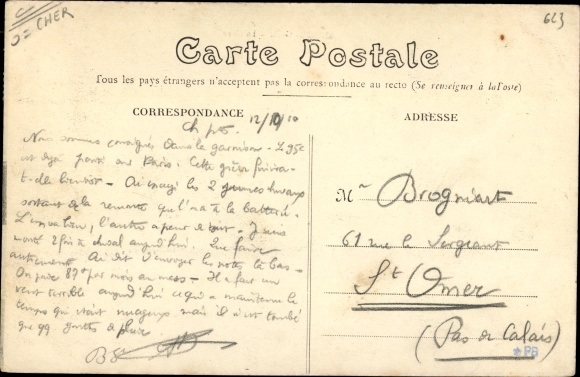 D = CHER
623
Carte Postale
Tous les pays étrangers n'acceptent pas la correspondance au recto (Se renseigner à la Poste)
CORRESPONDANCE
ADRESSE
12/10/10
Nous sommes consignés dans la garnison. Le 95e
est déjà parti sur Paris. Cette grève finira-
t-elle bientôt - Ai 2 jeunes chevaux
sortant de la remonte qu'il y a à la batterie.
L'un est bon, l'autre a peur de tout. Je suis
monté 2 fois à cheval aujourd'hui. Que faire
autrement Ai dit d'envoyer les notes là bas -
On paie 87f par mois au mess - Il a fait un
vent terrible aujourd'hui ce qui a maintenu le
temps qui était nuageux mais il n'est tombé
que qq gouttes de pluie
Mr Brogniart
61 rue le Sergeant
St Omer
(Pas de Calais)
PB